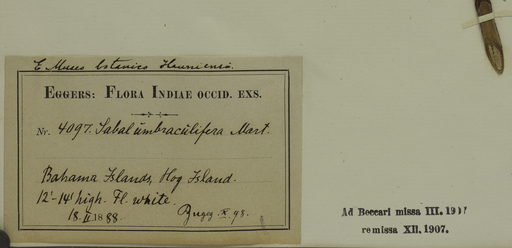 E Museo botanico Hauniensi.
EGGERS: FLORA INDIAE OCCID. EXS.
Nr. 4097. Sabal umbraculifera Mart.
Bahama Islands, Hog Island.
12'-14' high. Fl. white.
18. II. 1888.
X. 98.
Ad Beccari missa III. 1907
remissa XII, 1907.